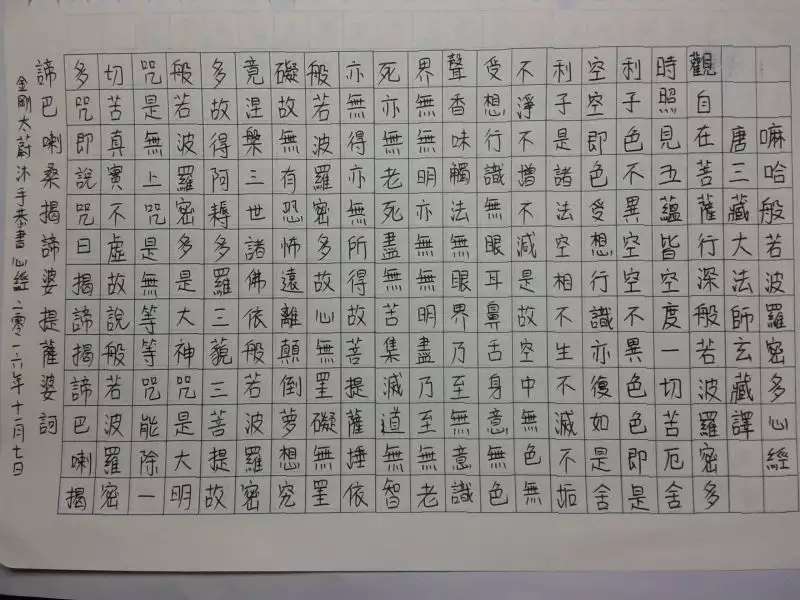 嘛哈般若波羅密多心經
唐三藏大法師玄藏譯
觀自在菩薩行深般若波羅密多
時照見五蘊皆空度一切苦厄舍
利子色不異空空不異色色即是
空空即色受想行識亦復如是舍
利子是諸法空相不生不滅不垢
不淨不憎不減是故空中無色無
受想行識無眼耳鼻舌身意無色
聲香味觸法無眼界乃至無意識
界無無明亦無無明盡乃至無老
死亦無老死盡無苦集滅道無智
亦無得亦無所得故菩提薩埵依
般若波羅密多故心無罣礙無罣
礙故無有恐怖遠離顛倒夢想究
竟涅槃三世諸佛依般若波羅密
多故得阿耨多羅三藐三菩提故
般若波羅密多是大神咒是大明
咒是無上咒是無等等咒能除一
切苦真實不虛故說般若波羅密
多咒即說咒曰揭諦揭諦巴喇揭
諦巴喇桑揭諦婆提薩婆訶
金剛太蔚沐手恭書心經二零一六年十二月七日